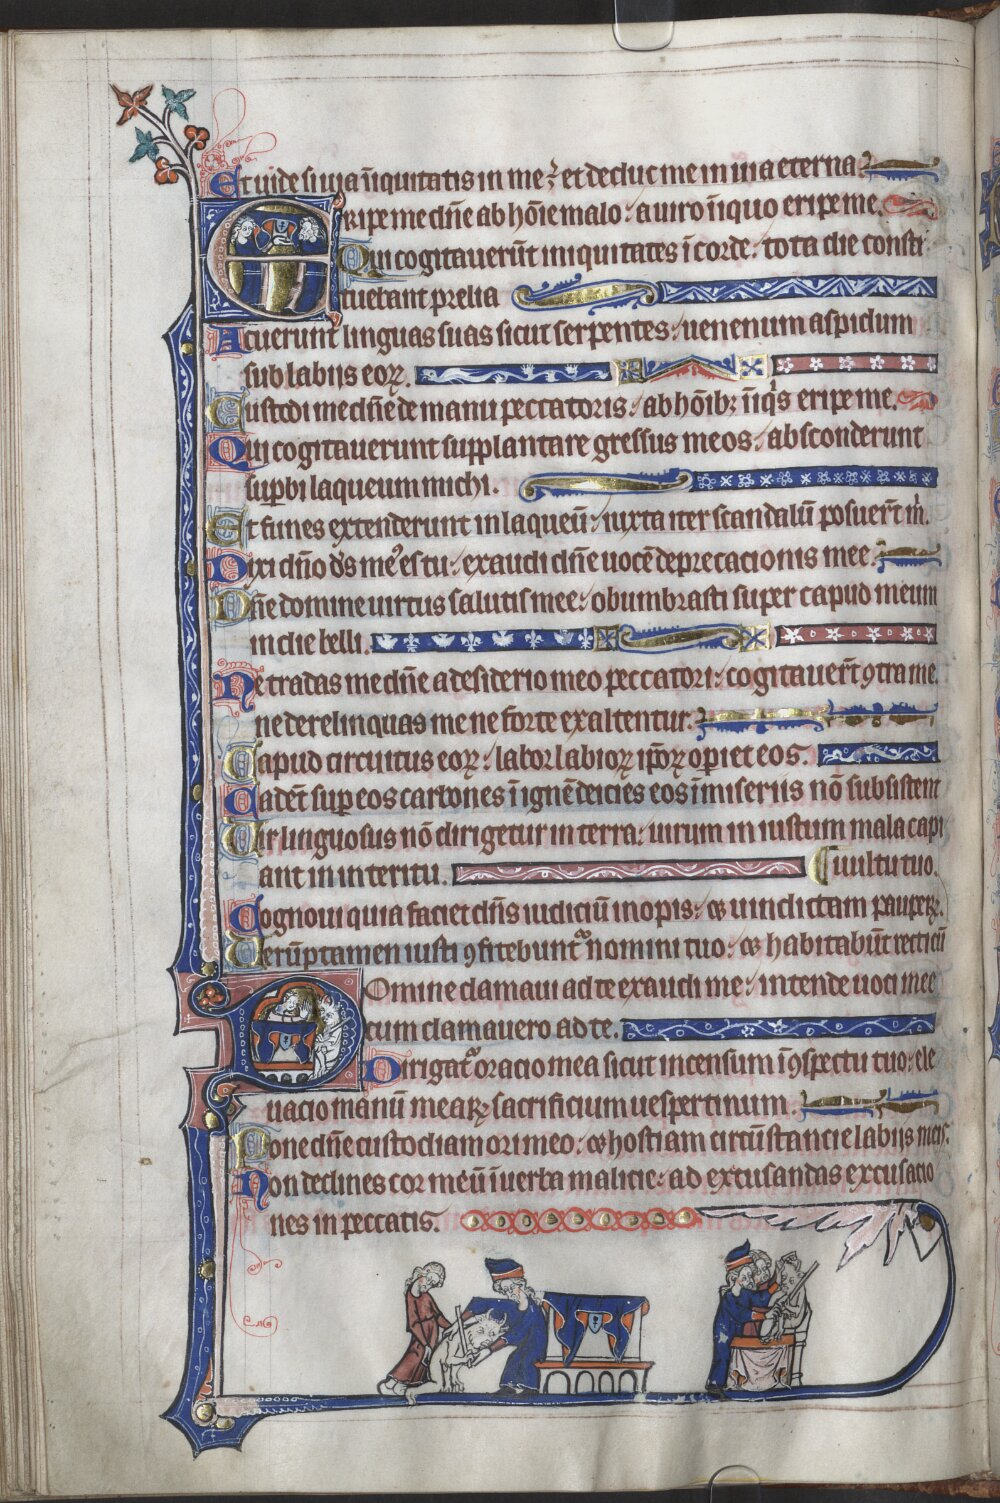 Et uide si uia īiquitatis in me ⁊ et deduc me in uia eterna.
Eripe me dn̄e ab hōīe malo : a uiro īiquo eripe me.
Qui cogitauerūt iniquitates ī corde : tota die consti
tuebant prelia
Acuerunt linguas suas sicut serpentes : uenenum aspidum
sub labiis eoꝝ.
Custodi me dn̄e de manu peccatoris : ab hōībꝫ īiqͥs eripe me.
Qui cogitauerunt supplantare gressus meos : absconderunt
suꝑbi laqueum michi.
Et funes extenderunt in laqueū : iuxta iter scandalū posuer̄t m̄.
Dixi dn̄o ds̄ meꝰ es tu : exaudi dn̄e uocē deprecacionis mee.
Dn̄e domine uirtus salutis mee : obumbrasti super capud meum
in die belli.
Ne tradas me dn̄e a desiderio meo peccatori : cogitauer̄t ꝯtra me
ne derelinquas me ne forte exaltentur.
Capud circuitus eoꝝ : labor labioꝝ ip̄oꝝ opiet eos.
Cadēt sup eos carbones ī ignē deicies eos ī miseriis nō subsistent
Uir linguosus nō dirigetur in terra : uirum in iustum mala capi
ant in interitu. uultu tuo.
Cognoui quia faciet dn̄s iudiciū inopis : ⁊ uindictam pauperꝝ.
Uerūptamen iusti ꝯfitebunt᷑ nomini tuo : ⁊ habitabūt recti cū
Domine clamaui ad te exaudi me : intende uoci mee
cum clamauero ad te.
Dirigat᷑ oracio mea sicut incensum ī ꝯspectu tuo : ele
uacio manū mearꝝ sacrificium uespertinum.
Pone dn̄e custodiam ori meo : ⁊ hostiam circūstancie labiis meis.
Non declines cor meū ī uerba malicie : ad excusandas excusatio
nes in peccatis.